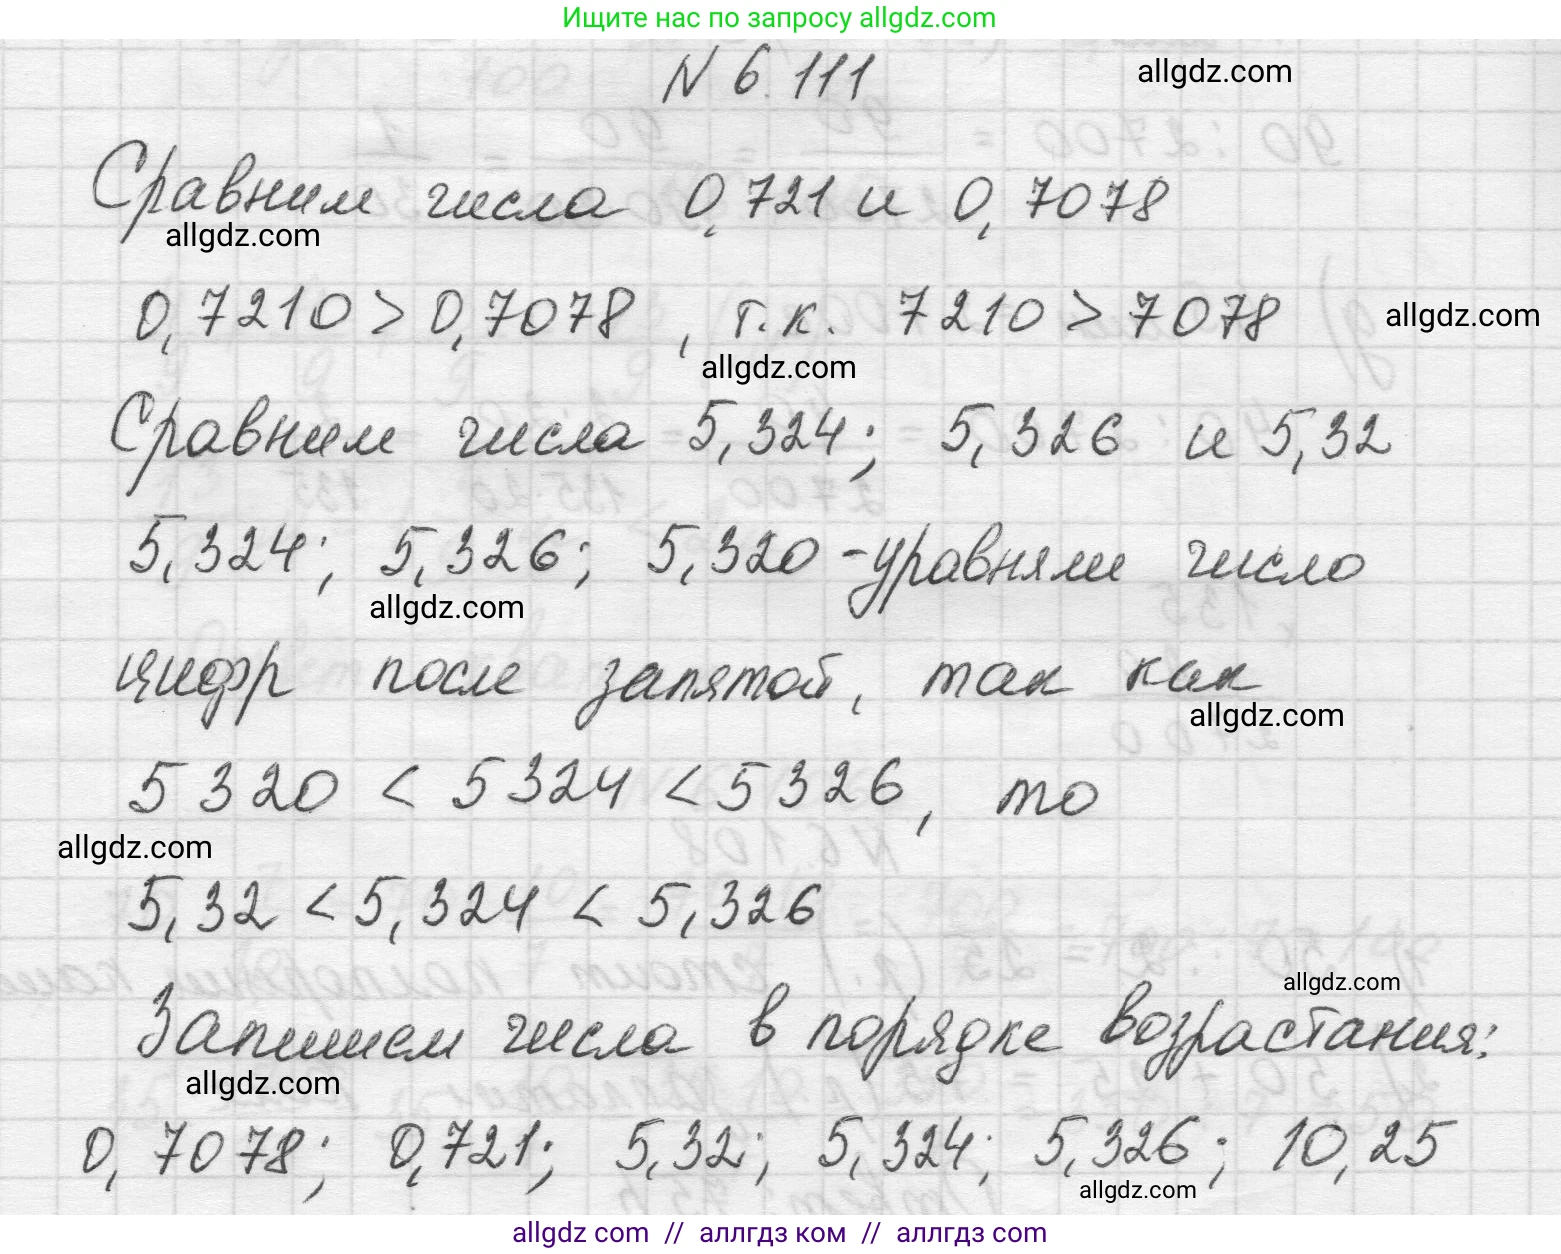 Ищите нас по запросу allgdz.com
N 6.111
allgdz.com
Сравним числа 0,721 и 0,7078
allgdz.com
0,7210 > 0,7078, т.к. 7210 > 7078
allgdz.com
allgdz.com
Сравним числа 5,324; 5,326 и 5,32
5,324; 5,326; 5,320 - уравняли число
allgdz.com
цифр после запятой, так как
allgdz.com
5320 < 5324 < 5326, то
allgdz.com
5,32 < 5,324 < 5,326
allgdz.com
Запишем числа в порядке возрастания:
allgdz.com
0,7078; 0,721; 5,32; 5,324; 5,326; 10,25
allgdz.com
allgdz.com // аллгдз ком // аллгдз com